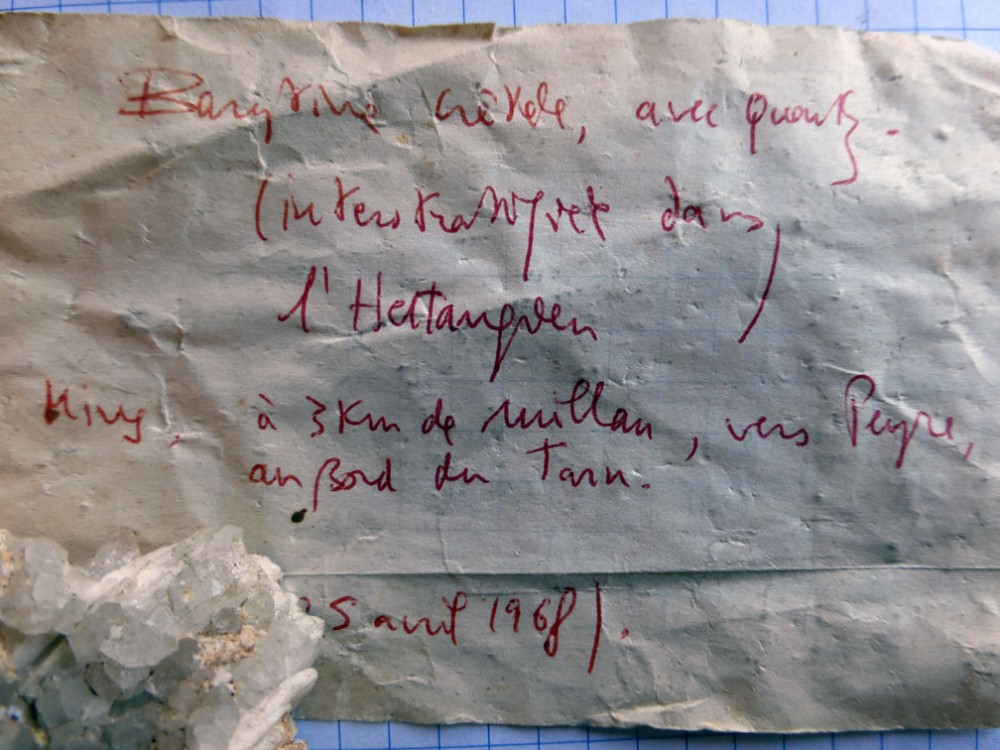 Barytine crêtée, avec quartz.
(interstratifiée dans
l'Hettangien
à 3 Km de Millau, vers Peyre,
au Bord du Tarn.
25 avril 1968).